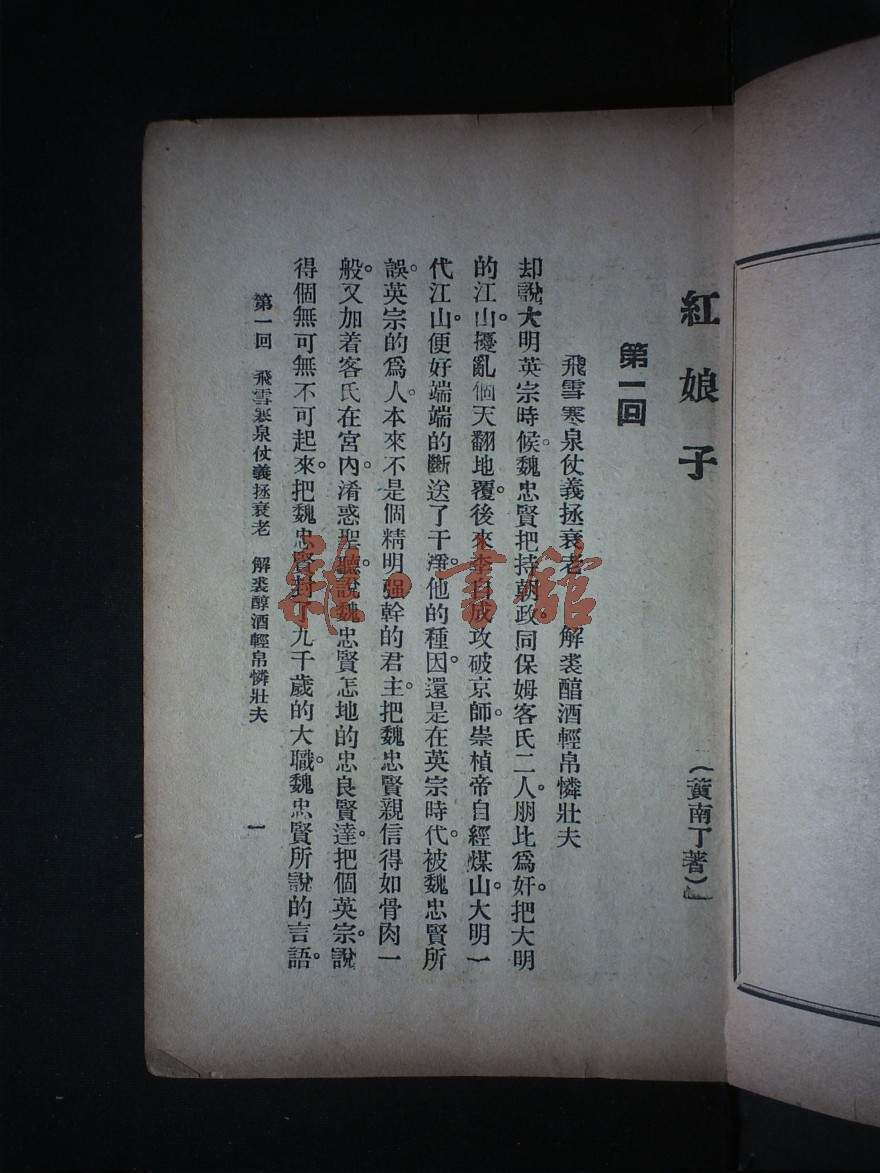 紅娘子
(黃南丁著)
第一回
飛雪寒泉仗義拯衰老 解裘醕酒輕帛憐壯夫
却說大明英宗時候。魏忠賢把持朝政。同保姆客氏二人。朋比爲奸。把大明
的江山。擾亂個天翻地覆。後來李自成攻破京師。崇楨帝自經煤山。大明一
代江山。便好端端的斷送了干凈。他的種因。還是在英宗時代。被魏忠賢所
誤。英宗的爲人。本來不是個精明强幹的君主。把魏忠賢親信得如骨肉一
般。又加着客氏在宮內淆惑聖聽。說魏忠賢怎地的忠良賢達。把個英宗。說
得個無可無不可起來。把魏忠賢封了九千歲的大職。魏忠賢所說的言語。
第一回 飛雪寒泉仗義拯衰老 解裘醇酒輕帛憐壯夫
一
雜·書館